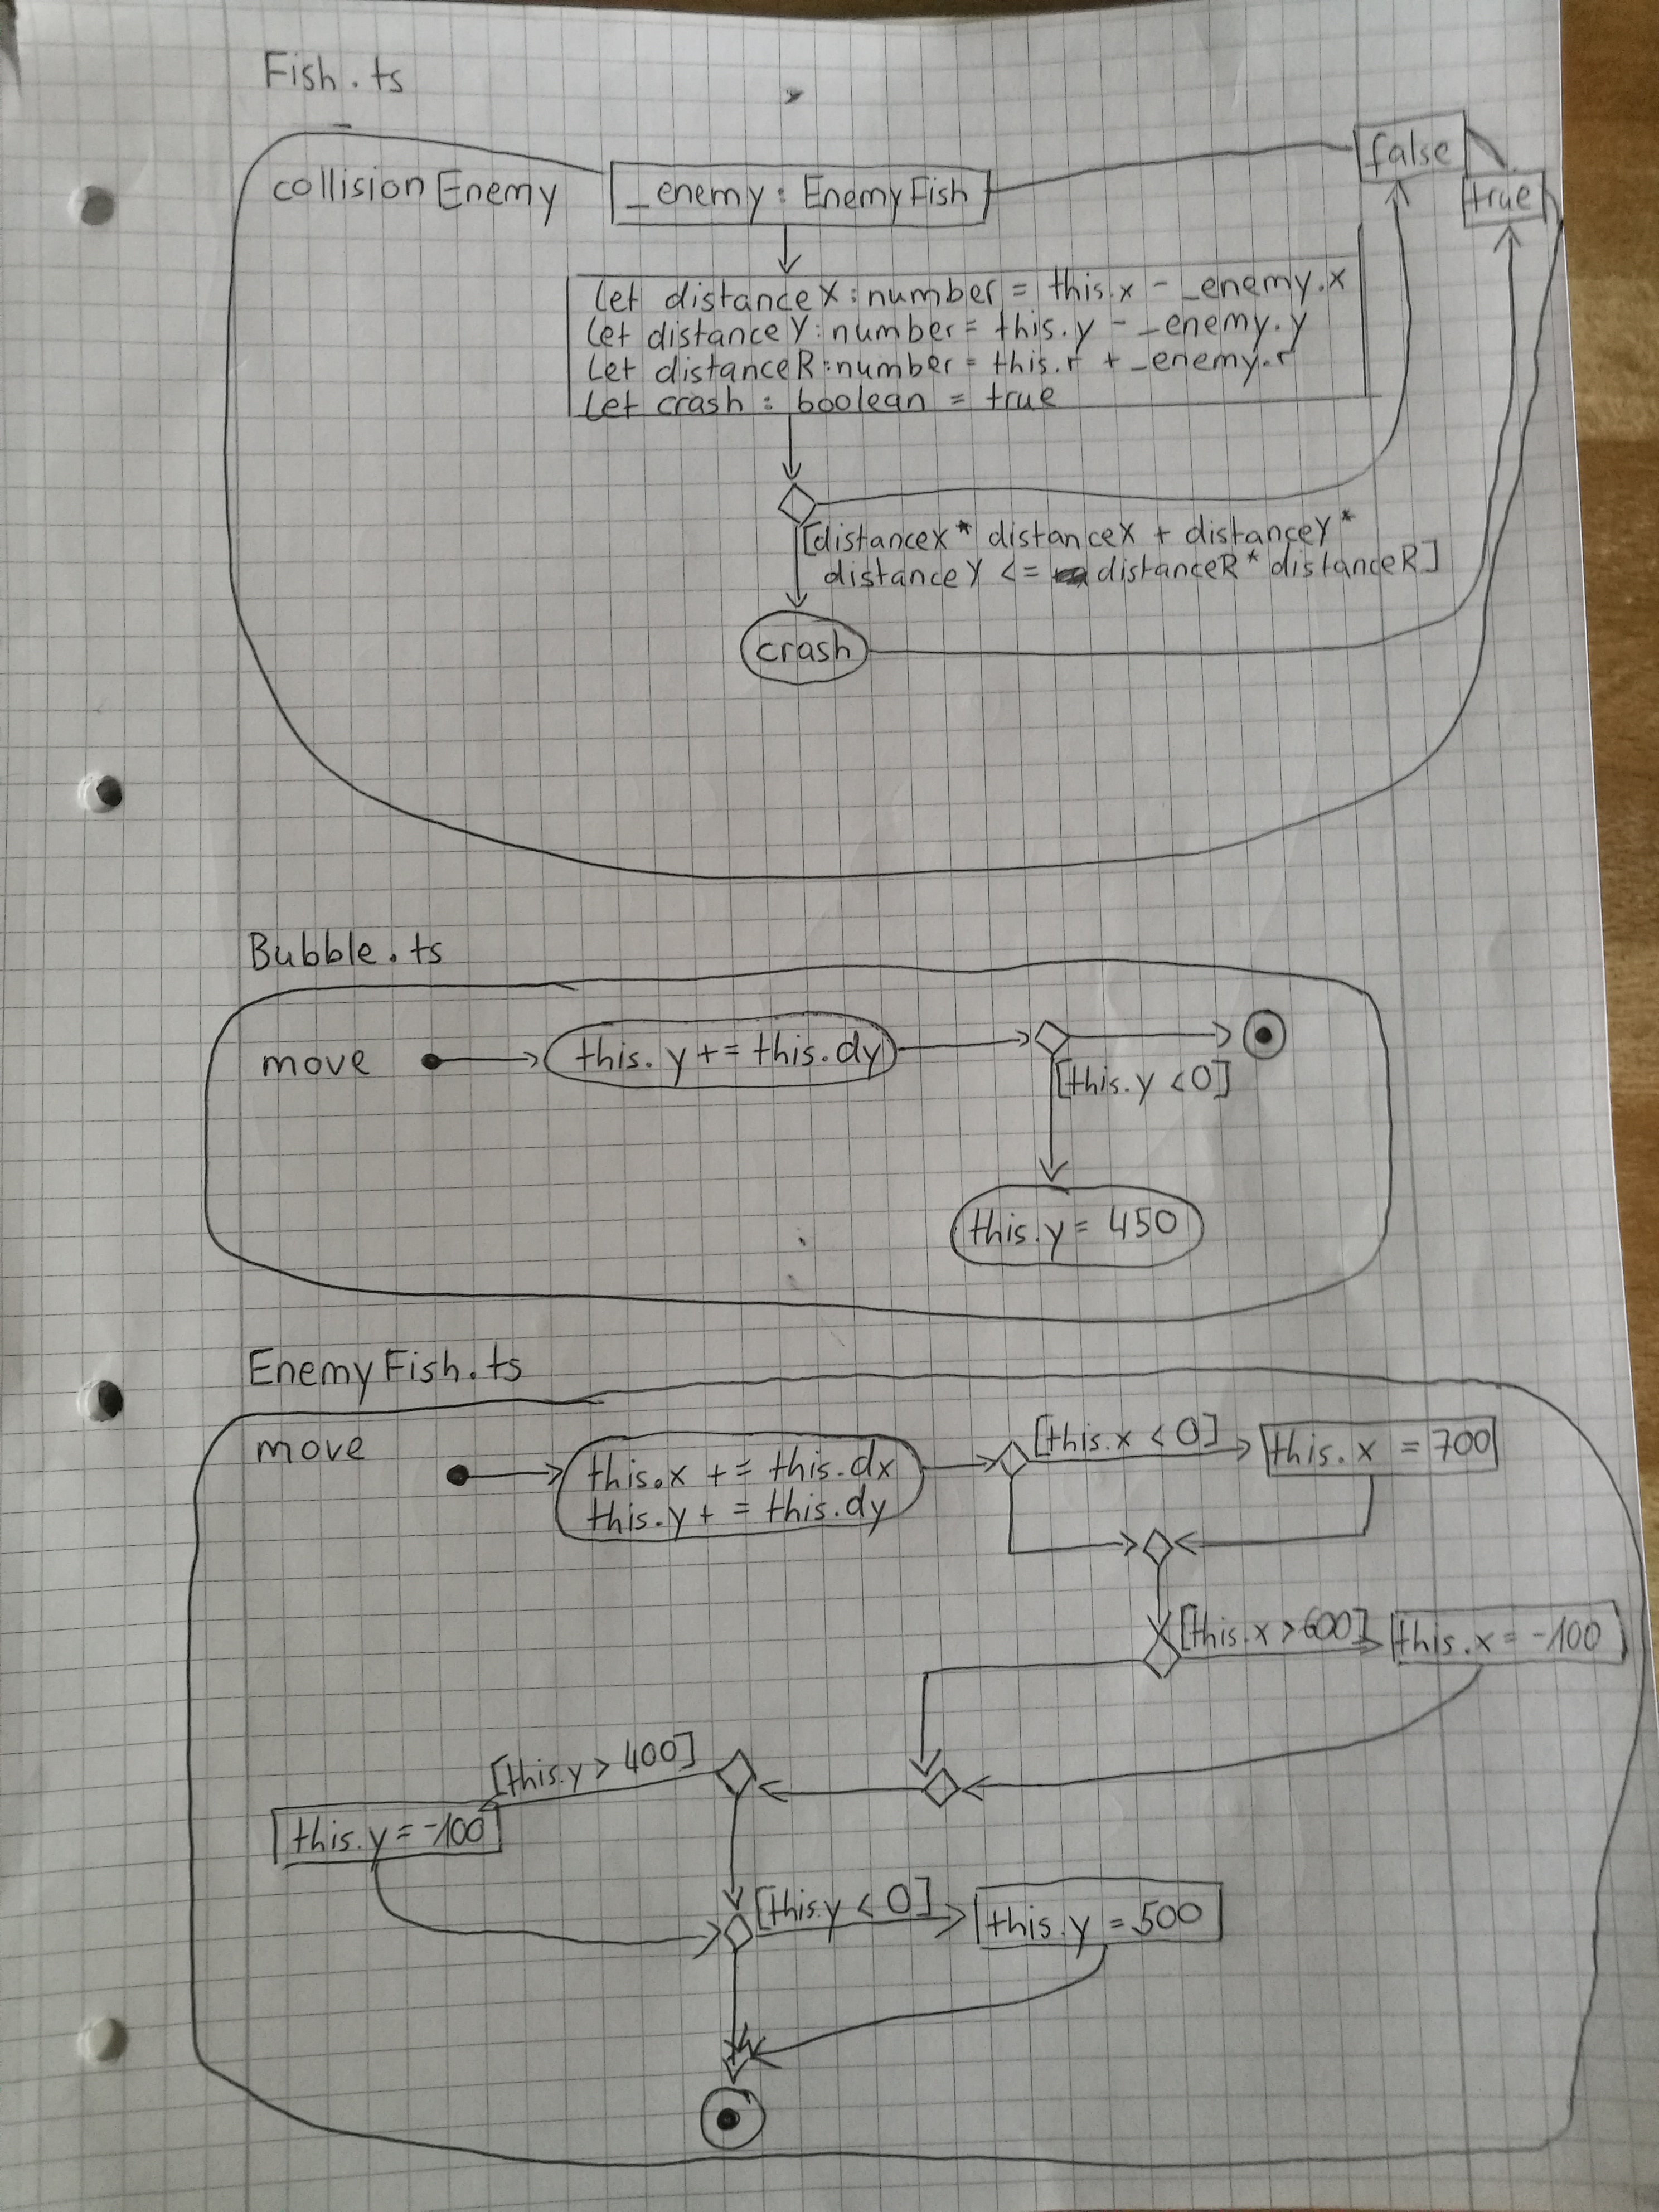 Fish.ts
false
collisionEnemy
_enemy: EnemyFish
true
let distanceX: number = this.x - _enemy.x
let distanceY: number = this.y - _enemy.y
let distanceR: number = this.r + _enemy.r
let crash: boolean = true
[distanceX * distanceX + distanceY *
distanceY <= distanceR * distanceR]
crash
Bubble.ts
move
this.y += this.dy
[this.y < 0]
this.y = 450
EnemyFish.ts
move
this.x += this.dx
this.y += this.dy
[this.x < 0]
this.x = 700
[this.x > 600]
this.x = -100
[this.y > 400]
this.y = -100
[this.y < 0]
this.y = 500